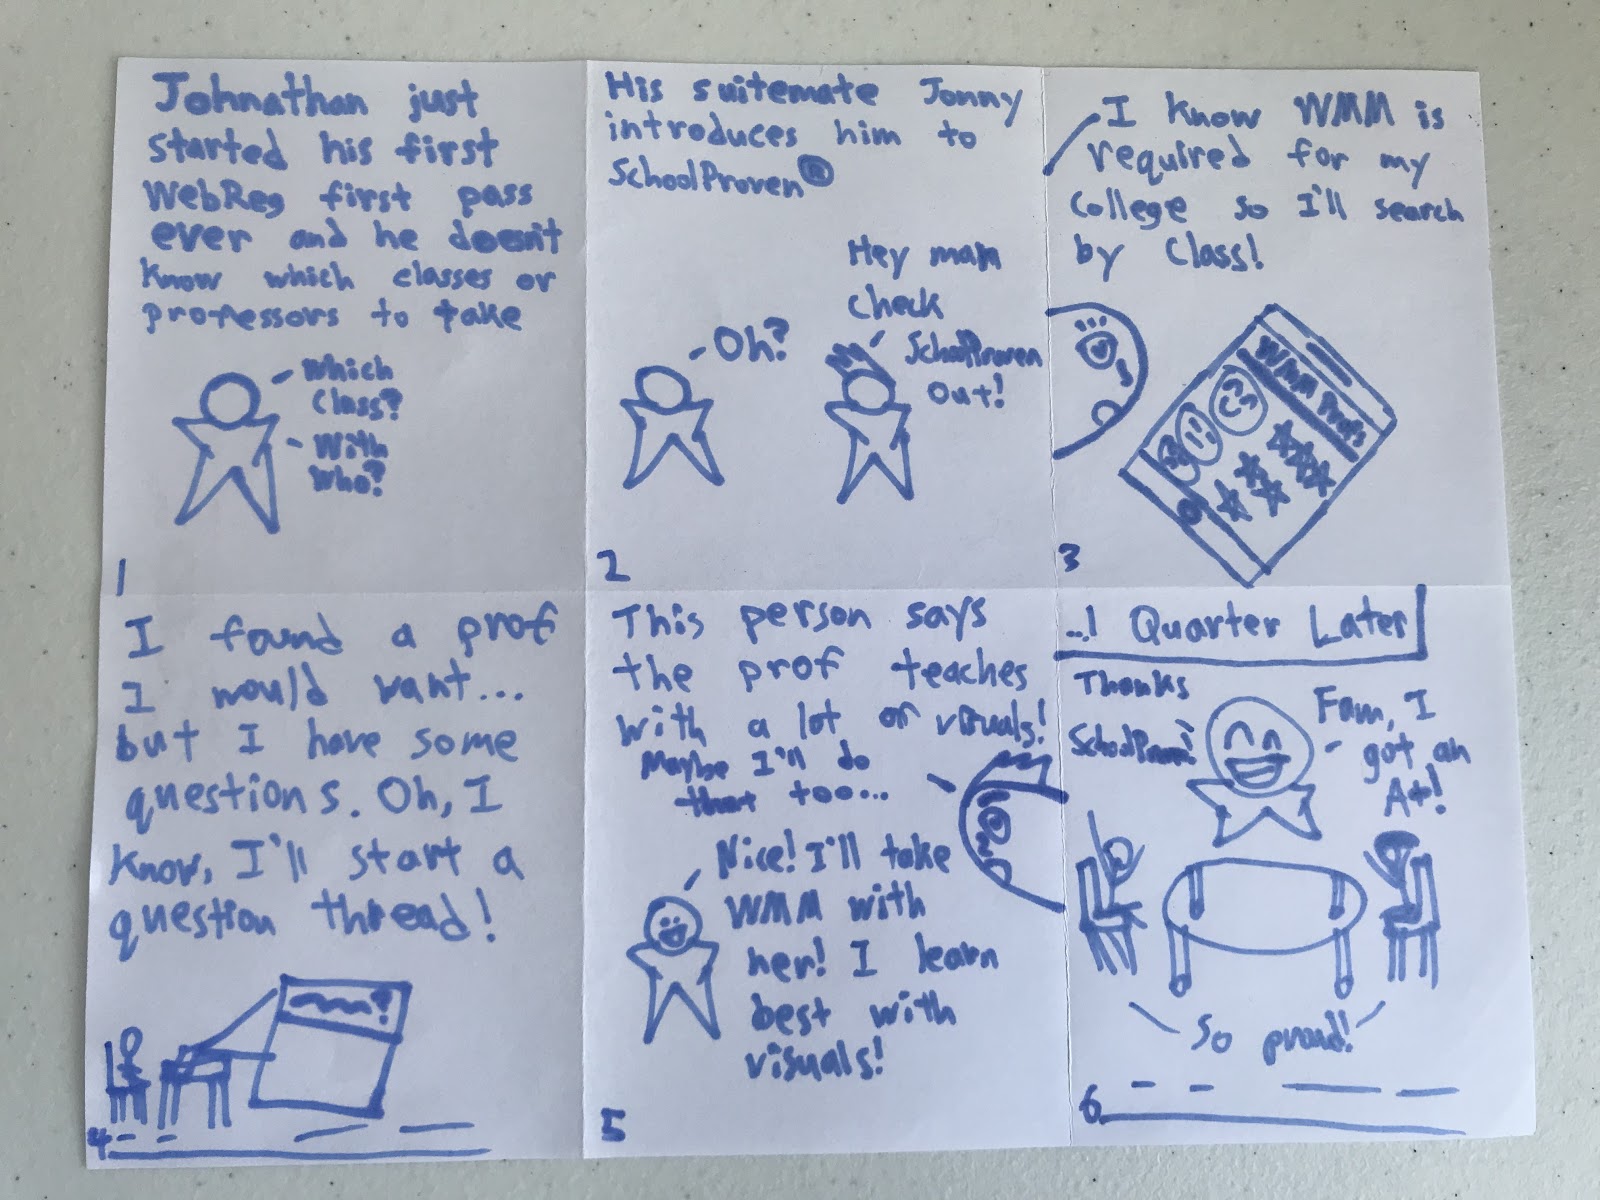 Johnathan just
started his first
WebReg first pass
ever and he doesn't
know which classes or
professors to take
Which
Class?
With
Who?
1
His suitemate Jonny
introduces him to
SchoolProven®
Oh?
Hey man
check
SchoolProven
Out!
2
I know WMM is
required for my
College so I'll search
by Class!
WMM Profs
3
I found a prof
I would want...
but I have some
questions. Oh, I
know, I'll start a
question thread!
?
4
This person says
the prof teaches
with a lot of visuals!
Maybe I'll do
that too...
Nice! I'll take
WMM with
her! I learn
best with
visuals!
5
...1 Quarter Later
Thanks
Fam, I
got an
A+!
So proud!
6